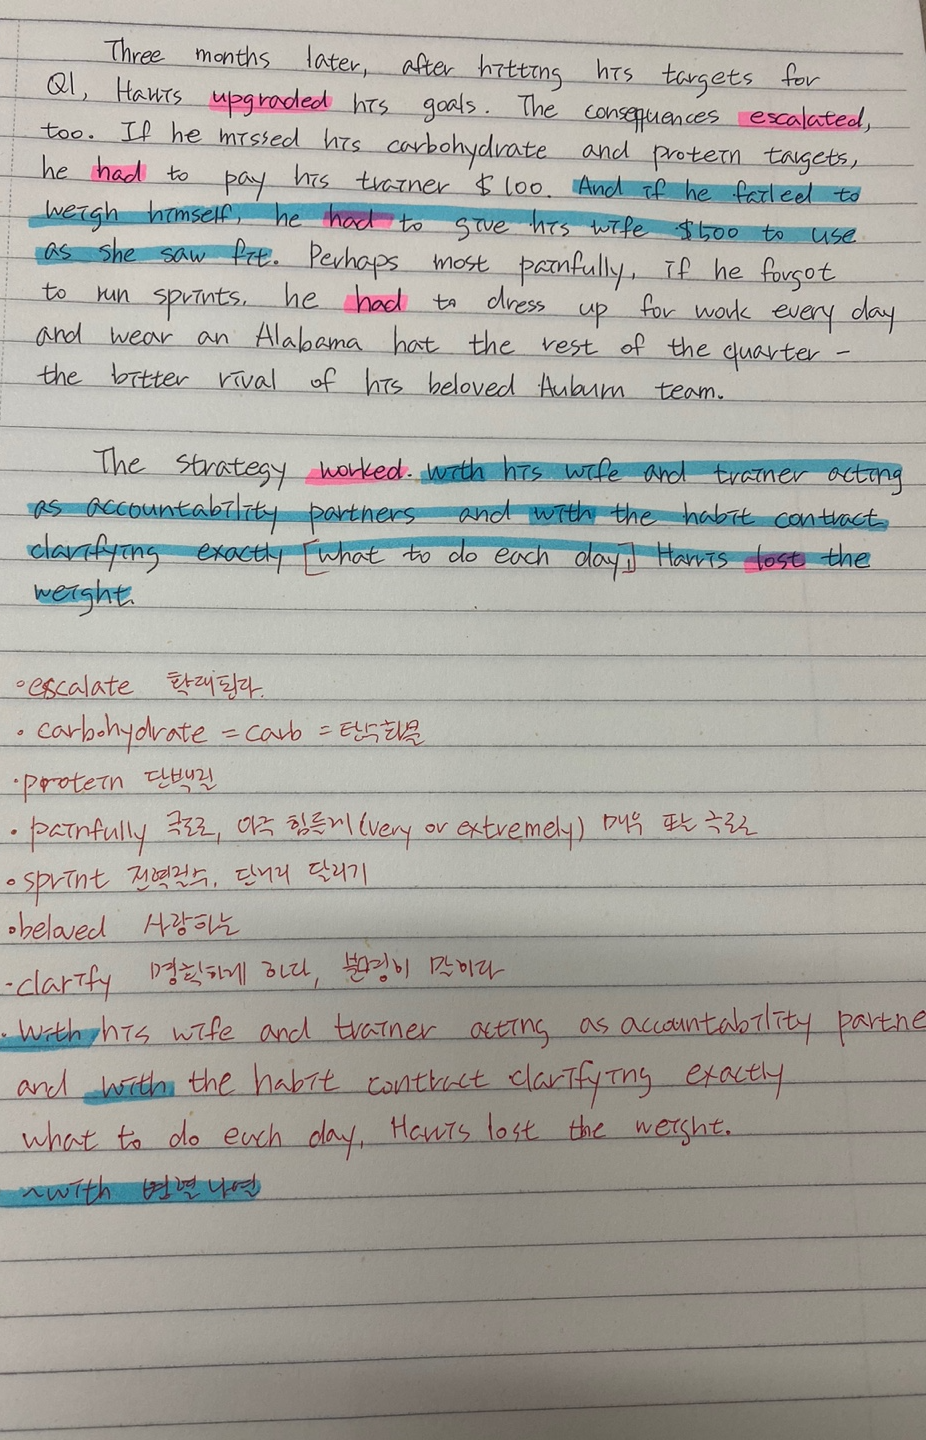 Three months later, after hitting his targets for
Q1, Harris upgraded his goals. The consequences escalated,
too. If he missed his carbohydrate and protein targets,
he had to pay his trainer $100. And if he failed to
weigh himself, he had to give his wife $500 to use
as she saw fit. Perhaps most painfully, if he forgot
to run sprints, he had to dress up for work every day
and wear an Alabama hat the rest of the quarter -
the bitter rival of his beloved Auburn team.
The strategy worked. With his wife and trainer acting
as accountability partners and with the habit contract
clarifying exactly [what to do each day,] Harris lost the
weight.
•escalate 확대된다.
• carbohydrate = carb = 탄수화물
•protein 단백질
• painfully 극도로, 아주 힘들게 (very or extremely) 매우 또는 극도로
• sprint 전력질주, 단거리 달리기
•beloved 사랑하는
•clarify 명확하게 하다, 분명히 말하다
• With his wife and trainer acting as accountability partne
and with the habit contract clarifying exactly
what to do each day, Harris lost the weight.
~with 병렬나열